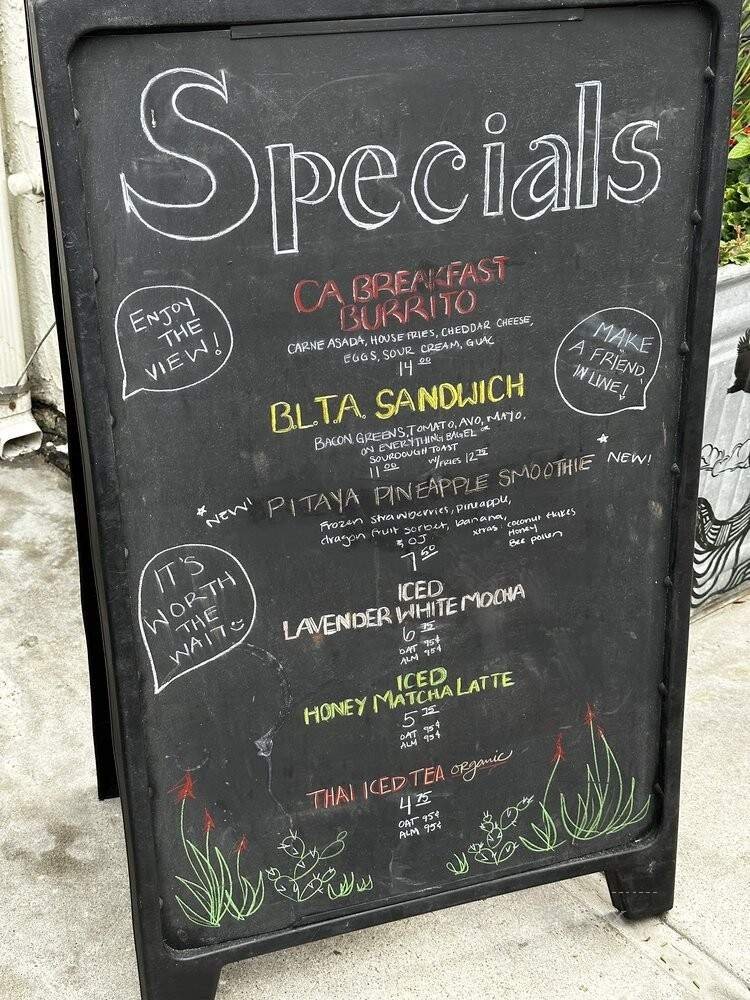 Specials
CA BREAKFAST
BURRITO
CARNE ASADA, HOUSE FRIES, CHEDDAR CHEESE,
EGGS, SOUR CREAM, GUAC
14 00
ENJOY
THE
VIEW!
MAKE
A FRIEND
IN LINE!
B.L.T.A. SANDWICH
BACON GREENS, TOMATO, AVO, MAYO,
ON EVERYTHING BAGEL OR
SOURDOUGH TOAST
11 00 W/FRIES 12 75
NEW! PITAYA PINEAPPLE SMOOTHIE NEW!
Frozen strawberries, pineapple,
dragon fruit sorbet, banana,
& OJ
xtras: coconut flakes
Honey
Bee pollen
7 50
IT'S
WORTH
THE
WAIT
ICED
LAVENDER WHITE MOCHA
6 75
OAT 95¢
ALM 95¢
ICED
HONEY MATCHA LATTE
5 75
OAT 95¢
ALM 95¢
THAI ICED TEA organic
4 75
OAT 95¢
ALM 95¢